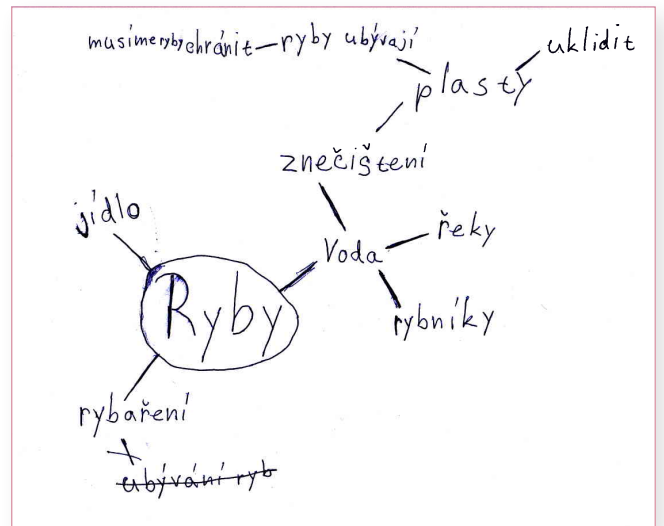 musíme ryby chránit – ryby ubývají
uklidit
plasty
znečištení
jídlo
řeky
Voda
Ryby
rybníky
rybaření
ubývání ryb